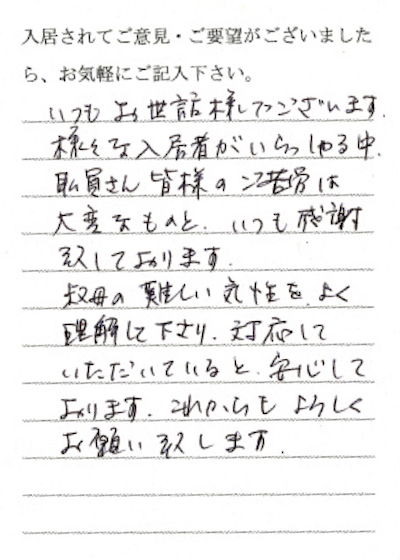 入居されてご意見・ご要望がございました
ら、お気軽にご記入下さい。
いつもお世話様でございます.
様々な入居者がいらっしゃる中.
職員さん皆様のご苦労は
大変なものと、いつも感謝
致しております.
叔母の難しい気性を、よく
理解して下さり、対応して
いただいていると、安心して
おります. これからもよろしく
お願い致します.